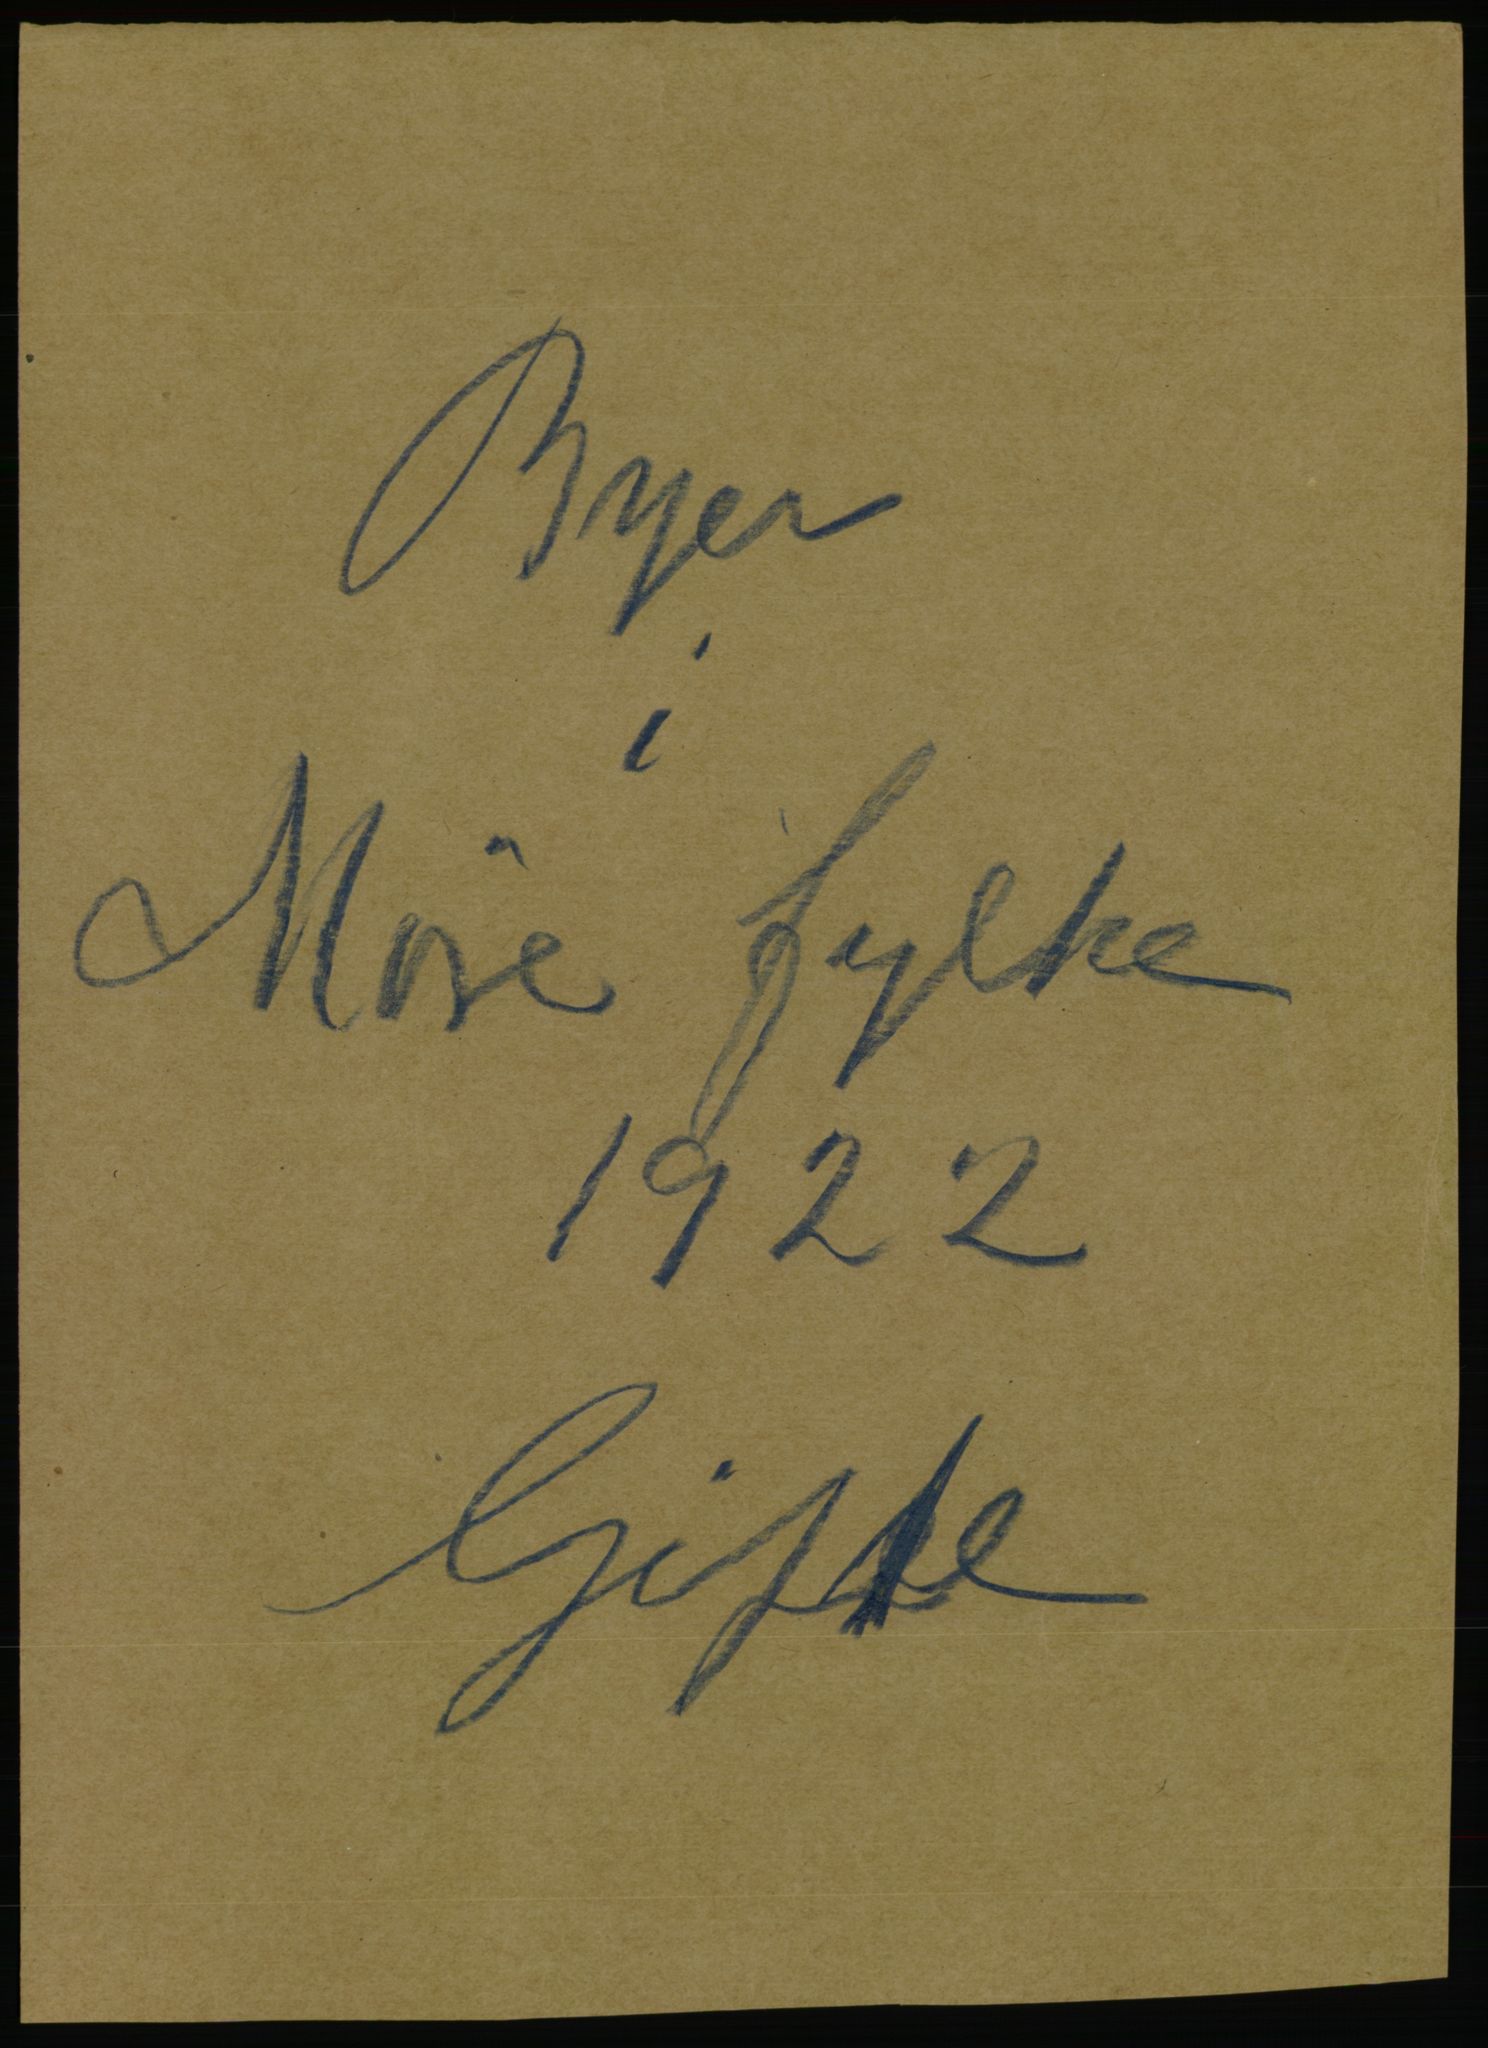 Byer
i
Möre fylke
1922
Gifte